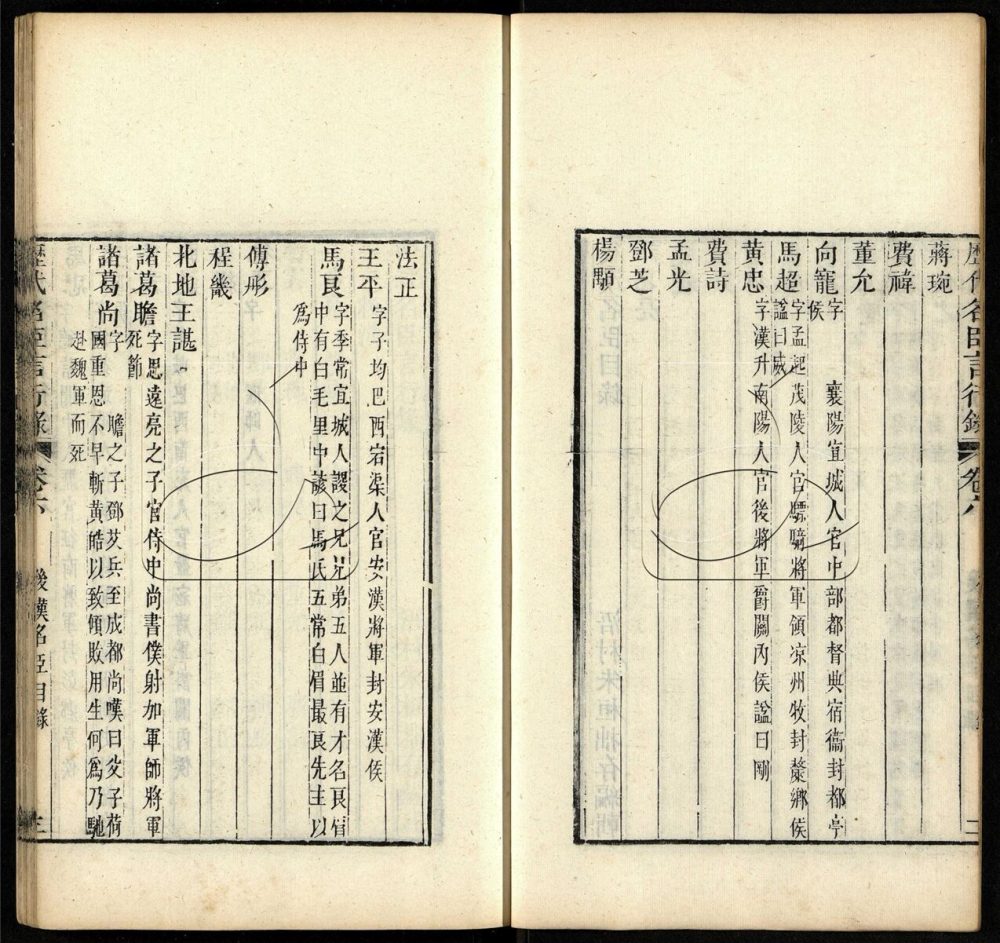 歷代名臣言行錄 卷六 二
蔣琬
費禕
董允
向寵 字 襄陽宜城人官中部都督典宿衞封都亭
侯
馬超 字孟起茂陵人官驃騎將軍領凉州牧封斄鄉侯
謚曰威
黃忠 字漢升南陽人官後將軍爵關內侯謚曰剛
費詩
孟光
鄧芝
楊顒
法正
王平 字子均巴西宕渠人官安漢將軍封安漢侯
馬良 字季常宜城人謖之兄兄弟五人並有才名良眉
中有白毛里中諺曰馬氏五常白眉最良先主以
爲侍中
傅彤
程畿
北地王諶
諸葛瞻 字思遠亮之子官侍中尚書僕射加軍師將軍
死節
諸葛尚 字 瞻之子鄧艾兵至成都尚嘆曰父子荷
國重恩不早斬黃皓以致傾敗用生何爲乃馳
赴魏軍而死
歷代名臣言行錄 卷六 後漢名臣目錄